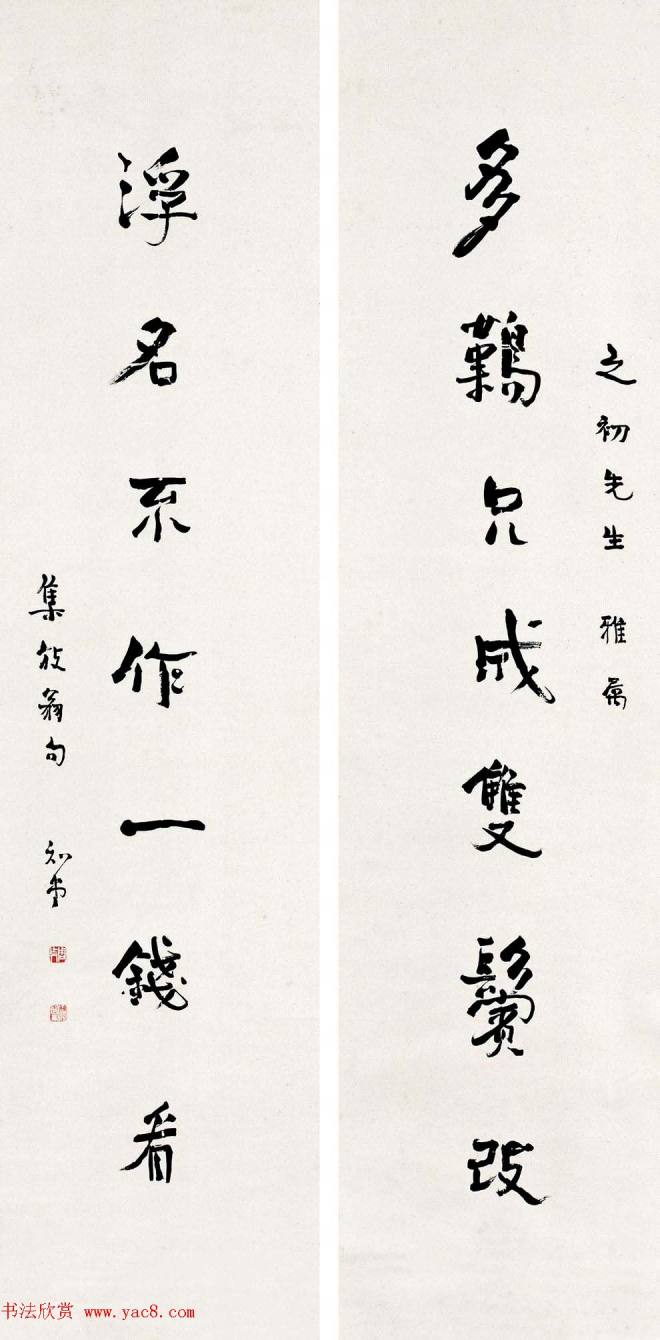 之初先生 雅屬
多難只成雙鬢改
浮名不作一錢看
集放翁句 知堂
书法欣赏 www.yac8.com